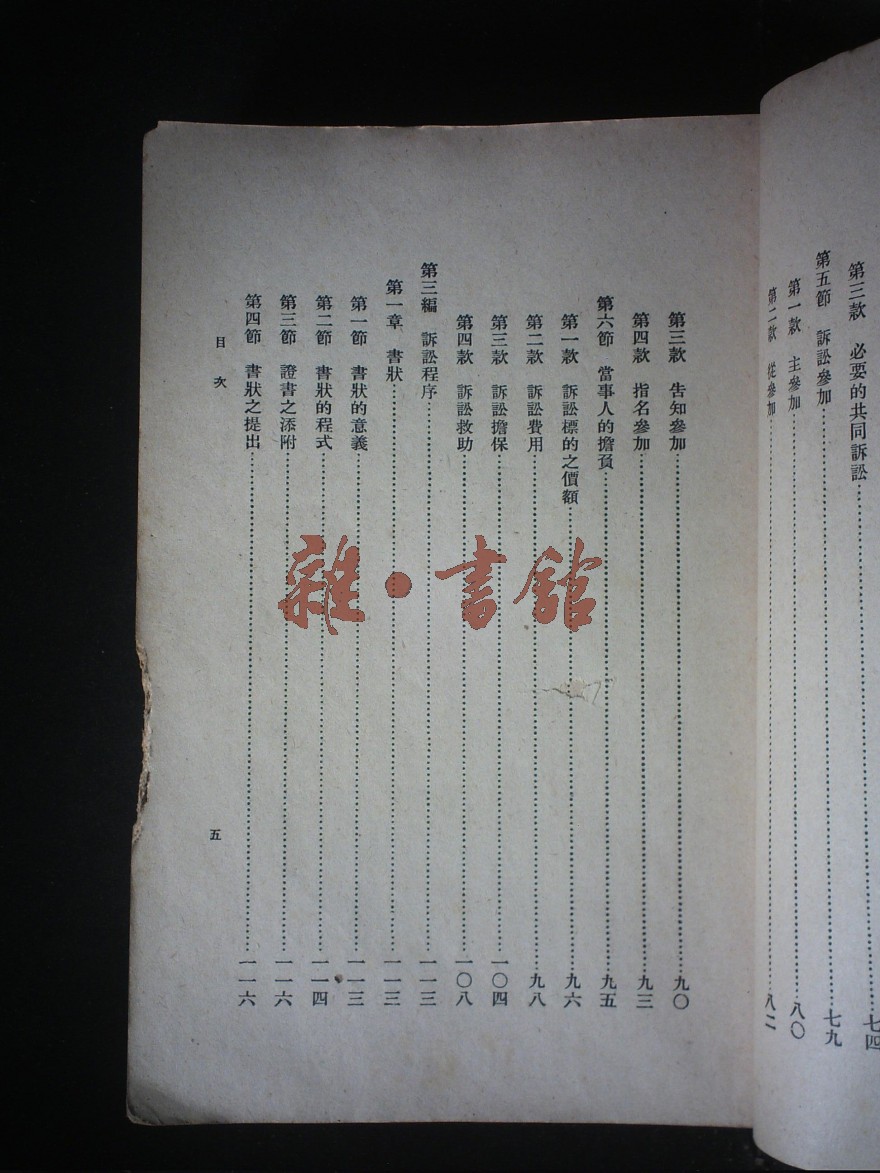 第三款 必要的共同訴訟……七四
第五節 訴訟參加……七九
第一款 主參加……八〇
第二款 從參加……八二
第三款 告知參加……九〇
第四款 指名參加……九三
第六節 當事人的擔負……九五
第一款 訴訟標的之價額……九六
第二款 訴訟費用……九八
第三款 訴訟擔保……一〇四
第四款 訴訟救助……一〇八
第三編 訴訟程序……一一三
第一章 書狀……一一三
第一節 書狀的意義……一一三
第二節 書狀的程式……一一四
第三節 證書之添附……一一六
第四節 書狀之提出……一一六
目次
五
雜·書館